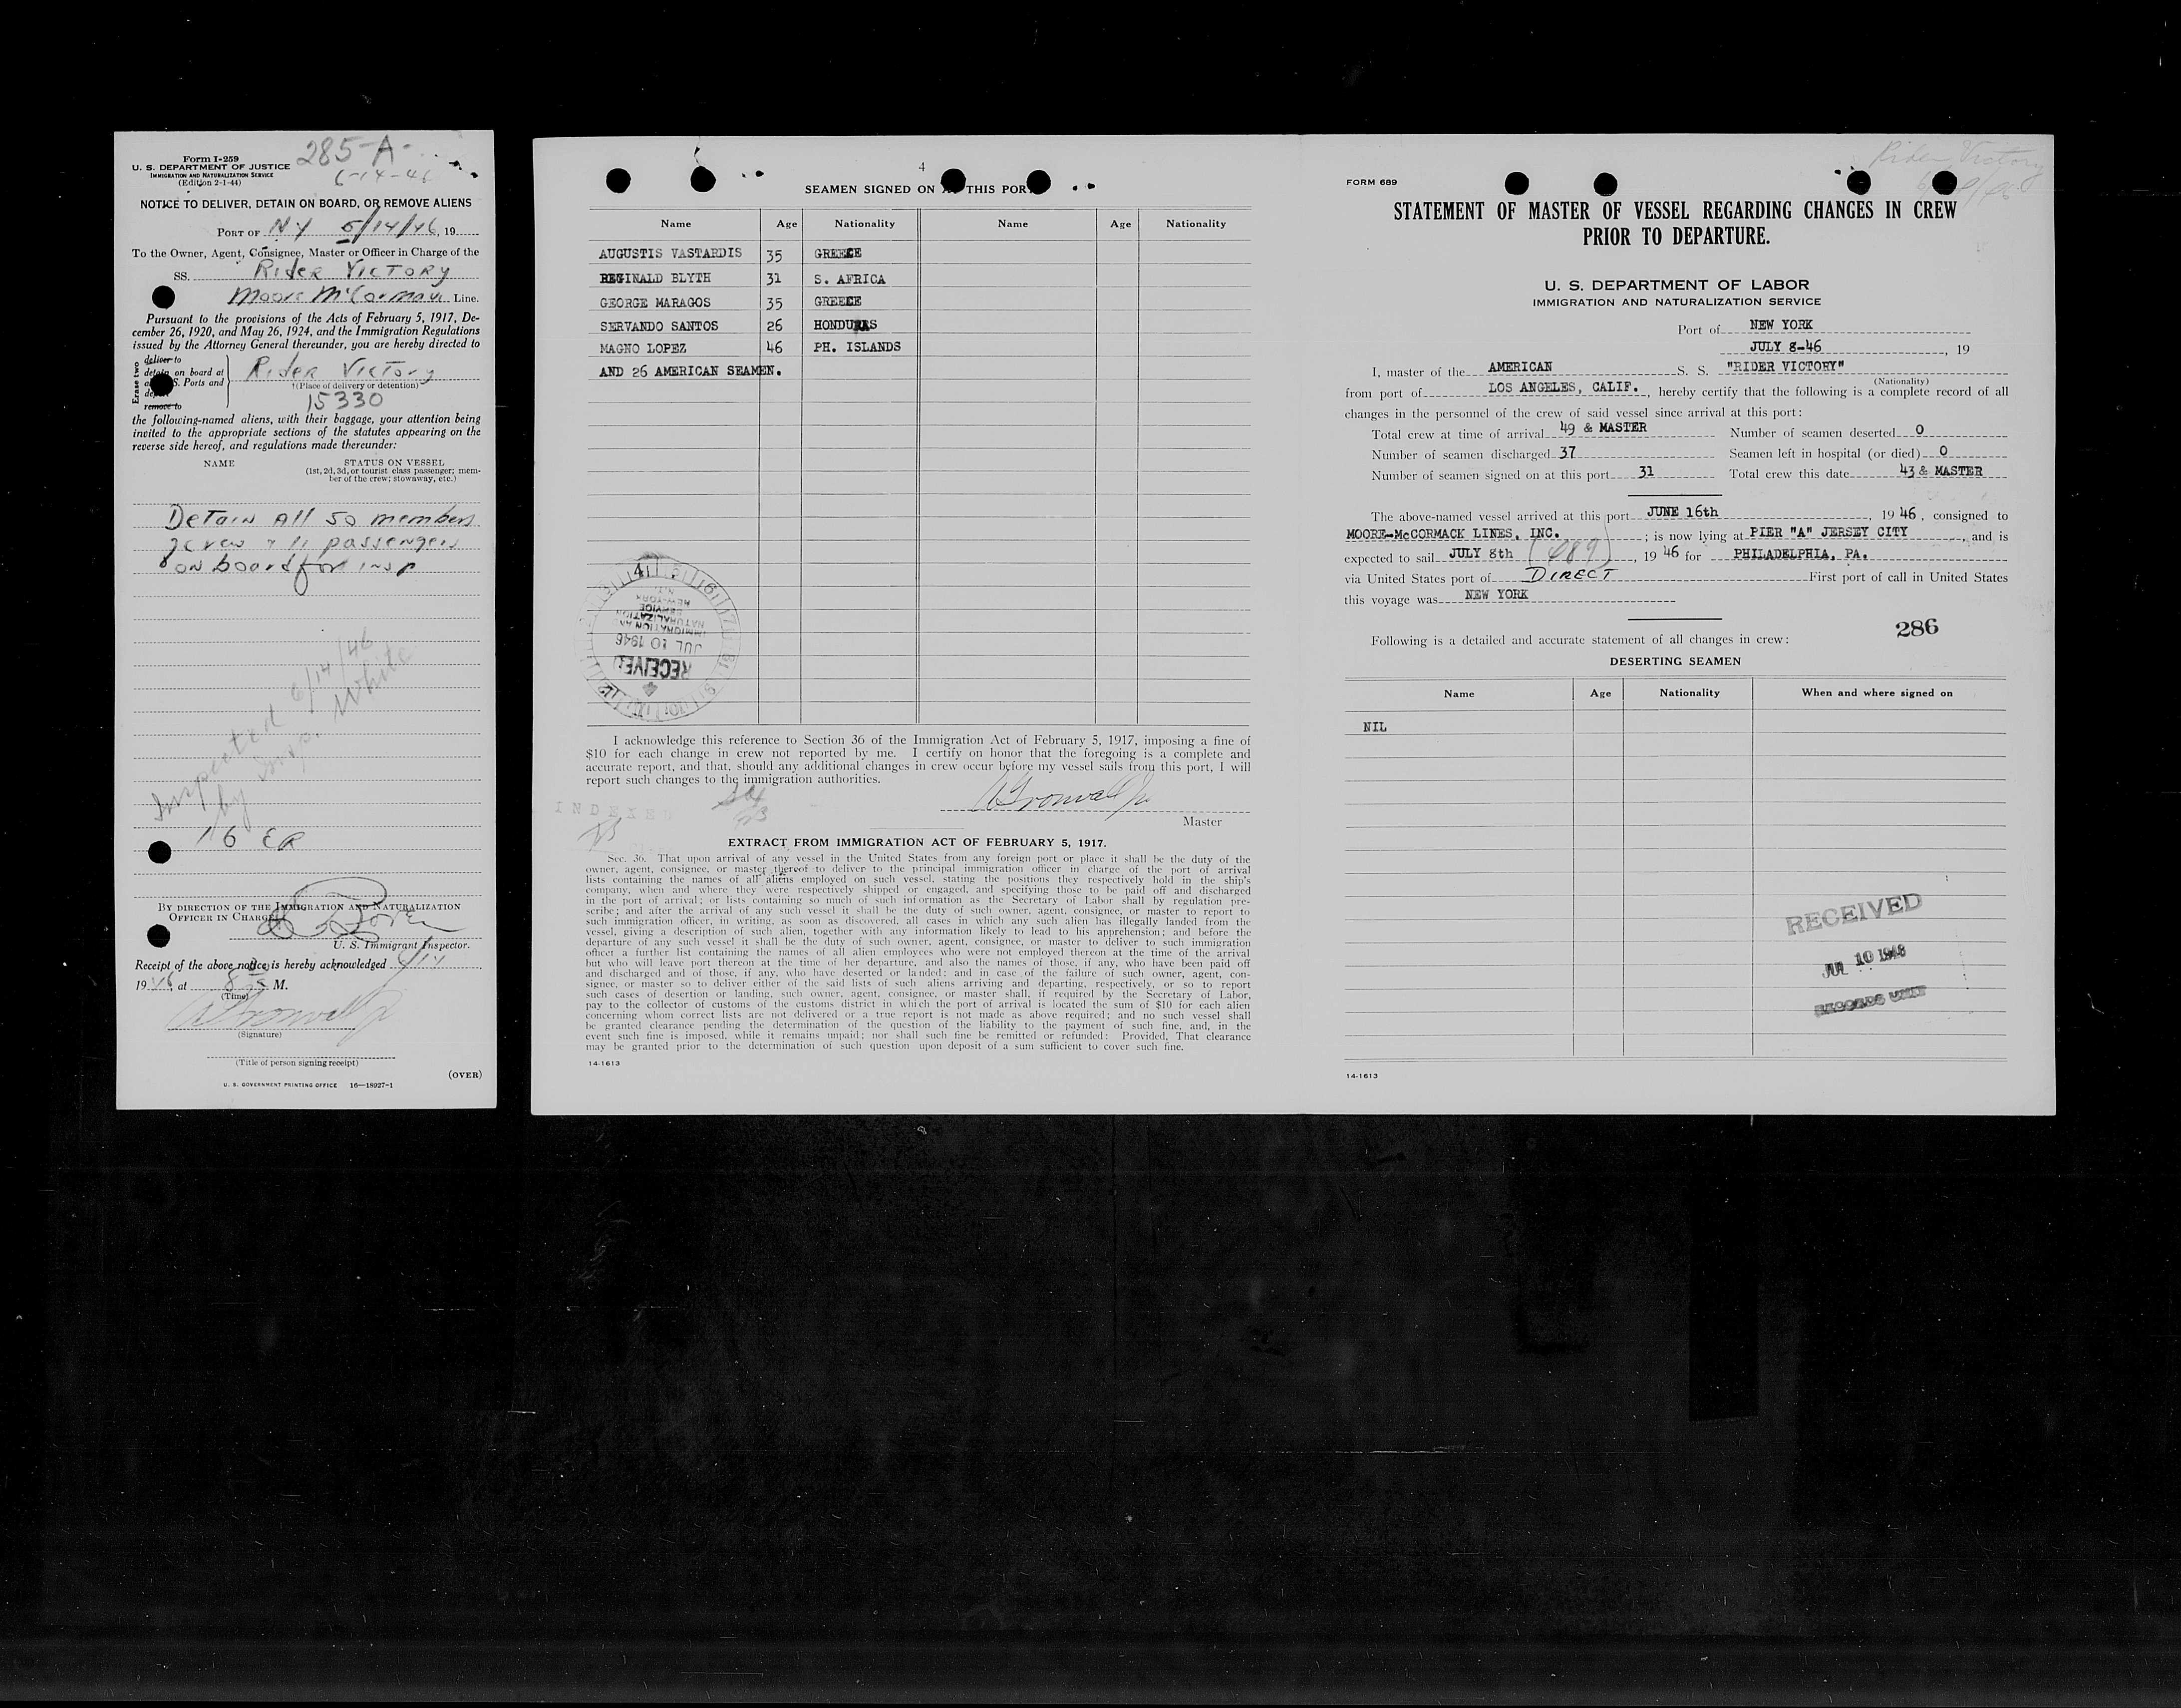 Form I-259
U. S. DEPARTMENT OF JUSTICE
IMMIGRATION AND NATURALIZATION SERVICE
(Edition 2-1-44)
285-A-
6-14-46
NOTICE TO DELIVER, DETAIN ON BOARD, OR REMOVE ALIENS
PORT OF NY 5/14/46, 19
To the Owner, Agent, Consignee, Master or Officer in Charge of the
SS. Rider Victory
Moore McCormack Line.
Pursuant to the provisions of the Acts of February 5, 1917, De-
cember 26, 1920, and May 26, 1924, and the Immigration Regulations
issued by the Attorney General thereunder, you are hereby directed to
Erase two
deliver to
detain on board at
S. Ports and
remove to
Rider Victory
(Place of delivery or detention)
15330
the following-named aliens, with their baggage, your attention being
invited to the appropriate sections of the statutes appearing on the
reverse side hereof, and regulations made thereunder:
NAME
STATUS ON VESSEL
(1st, 2d, 3d, or tourist class passenger; mem-
ber of the crew; stowaway, etc.)
Detain all 50 members
crew & 11 passengers
on board for insp
Inspected 6/14/46
by Insp. White
16 ER
BY DIRECTION OF THE IMMIGRATION AND NATURALIZATION
OFFICER IN CHARGE
U. S. Immigrant Inspector.
Receipt of the above notice is hereby acknowledged 6/14
1946, at 8 M.
(Time)
(Signature)
(Title of person signing receipt)
(OVER)
U. S. GOVERNMENT PRINTING OFFICE 16—18927-1
4
SEAMEN SIGNED ON AT THIS PORT
Name Age Nationality Name Age Nationality
AUGUSTIS VASTARDIS 35 GREECE
REGINALD BLYTH 31 S. AFRICA
GEORGE MARAGOS 35 GREECE
SERVANDO SANTOS 26 HONDURAS
MAGNO LOPEZ 46 PH. ISLANDS
AND 26 AMERICAN SEAMEN.
RECEIVED
JUL 10 1946
IMMIGRATION AND
NATURALIZATION
SERVICE
NEW-YORK
N.Y.
I acknowledge this reference to Section 36 of the Immigration Act of February 5, 1917, imposing a fine of
$10 for each change in crew not reported by me. I certify on honor that the foregoing is a complete and
accurate report, and that, should any additional changes in crew occur before my vessel sails from this port, I will
report such changes to the immigration authorities.
INDEXED
Master
EXTRACT FROM IMMIGRATION ACT OF FEBRUARY 5, 1917.
Sec. 36. That upon arrival of any vessel in the United States from any foreign port or place it shall be the duty of the
owner, agent, consignee, or master thereof to deliver to the principal immigration officer in charge of the port of arrival
lists containing the names of all aliens employed on such vessel, stating the positions they respectively hold in the ship's
company, when and where they were respectively shipped or engaged, and specifying those to be paid off and discharged
in the port of arrival; or lists containing so much of such information as the Secretary of Labor shall by regulation pre-
scribe; and after the arrival of any such vessel it shall be the duty of such owner, agent, consignee, or master to report to
such immigration officer, in writing, as soon as discovered, all cases in which any such alien has illegally landed from the
vessel, giving a description of such alien, together with any information likely to lead to his apprehension; and before the
departure of any such vessel it shall be the duty of such owner, agent, consignee, or master to deliver to such immigration
officer a further list containing the names of all alien employees who were not employed thereon at the time of the arrival
but who will leave port thereon at the time of her departure, and also the names of those, if any, who have been paid off
and discharged and of those, if any, who have deserted or landed; and in case of the failure of such owner, agent, con-
signee, or master so to deliver either of the said lists of such aliens arriving and departing, respectively, or so to report
such cases of desertion or landing, such owner, agent, consignee, or master shall, if required by the Secretary of Labor,
pay to the collector of customs of the customs district in which the port of arrival is located the sum of $10 for each alien
concerning whom correct lists are not delivered or a true report is not made as above required; and no such vessel shall
be granted clearance pending the determination of the question of the liability to the payment of such fine, and, in the
event such fine is imposed, while it remains unpaid; nor shall such fine be remitted or refunded: Provided, That clearance
may be granted prior to the determination of such question upon deposit of a sum sufficient to cover such fine.
14-1613
Rider Victory
FORM 689
STATEMENT OF MASTER OF VESSEL REGARDING CHANGES IN CREW
PRIOR TO DEPARTURE.
U. S. DEPARTMENT OF LABOR
IMMIGRATION AND NATURALIZATION SERVICE
Port of NEW YORK
JULY 8-46, 19
I, master of the AMERICAN S. S. "RIDER VICTORY"
(Nationality)
from port of LOS ANGELES, CALIF., hereby certify that the following is a complete record of all
changes in the personnel of the crew of said vessel since arrival at this port:
Total crew at time of arrival 49 & MASTER Number of seamen deserted 0
Number of seamen discharged 37 Seamen left in hospital (or died) 0
Number of seamen signed on at this port 31 Total crew this date 43 & MASTER
The above-named vessel arrived at this port JUNE 16th, 1946, consigned to
MOORE-McCORMACK LINES, INC.; is now lying at PIER "A" JERSEY CITY, and is
expected to sail JULY 8th (489), 1946 for PHILADELPHIA, PA.
via United States port of DIRECT First port of call in United States
this voyage was NEW YORK
286
Following is a detailed and accurate statement of all changes in crew:
DESERTING SEAMEN
Name Age Nationality When and where signed on
NIL
RECEIVED
JUL 10 1946
RECORDS UNIT
14-1613